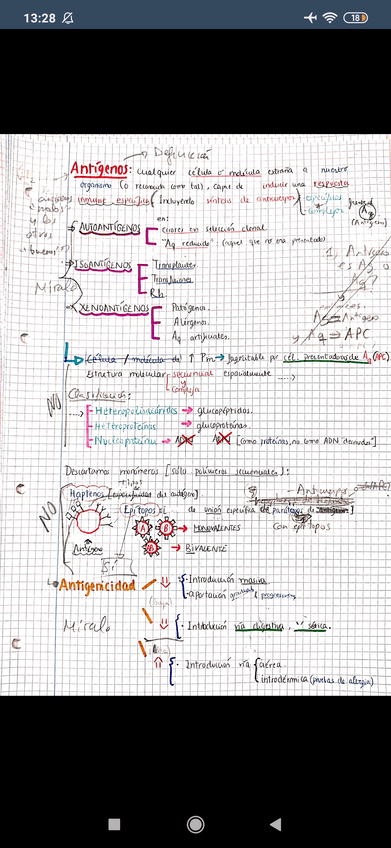 13:28
18
Definición
Antígenos: cualquier célula o molécula extraña a nuestro
organismo (o reconocida como tal), capaz de inducir una respuesta
inmune específica (incluyendo síntesis de anticuerpos)
específicos
complejos
(Antígeno)
y los
otros
"buenos"
en:
AUTOANTÍGENOS
Errores en selección clonal.
"Ag recluido" (aquel que no era presentado)
ISOANTÍGENOS
Transplantes.
Transfusiones
Rh.
Míralo
XENOANTÍGENOS
Patógenos.
Alérgenos.
Ag artificiales.
1, Antígeno
es Ag o
Ag?
As = Antígeno
y Ag ⇒ APC
Célula / molécula de ↑ Pm → Ingestable por cél. presentadoras de Ag (APC)
Estructura molecular secuencial especialmente
y
compleja
NO
Clasificación:
Heteropolisacáridos → glucopéptidos.
Heteroproteínas → glucoproteínas.
Nucleoproteínas → ADN ADN [como proteínas, no como ADN desnudo]
Descartamos monómeros [sólo polímeros secuenciales]:
NO
Haptenos [especificidad del antígeno]
Epítopos
de unión específica de parátopos de
Anticuerpo
con epítopos
A B → MONOVALENTES
B → BIVALENTE
Antígeno
SÍ
Antigenicidad
(baja)
· Introducción masiva
· aportación gradual y progresiva
Míralo
· Introducción vía digestiva, sérica.
· Introducción vía
aérea
intradérmica (pruebas de alergia)